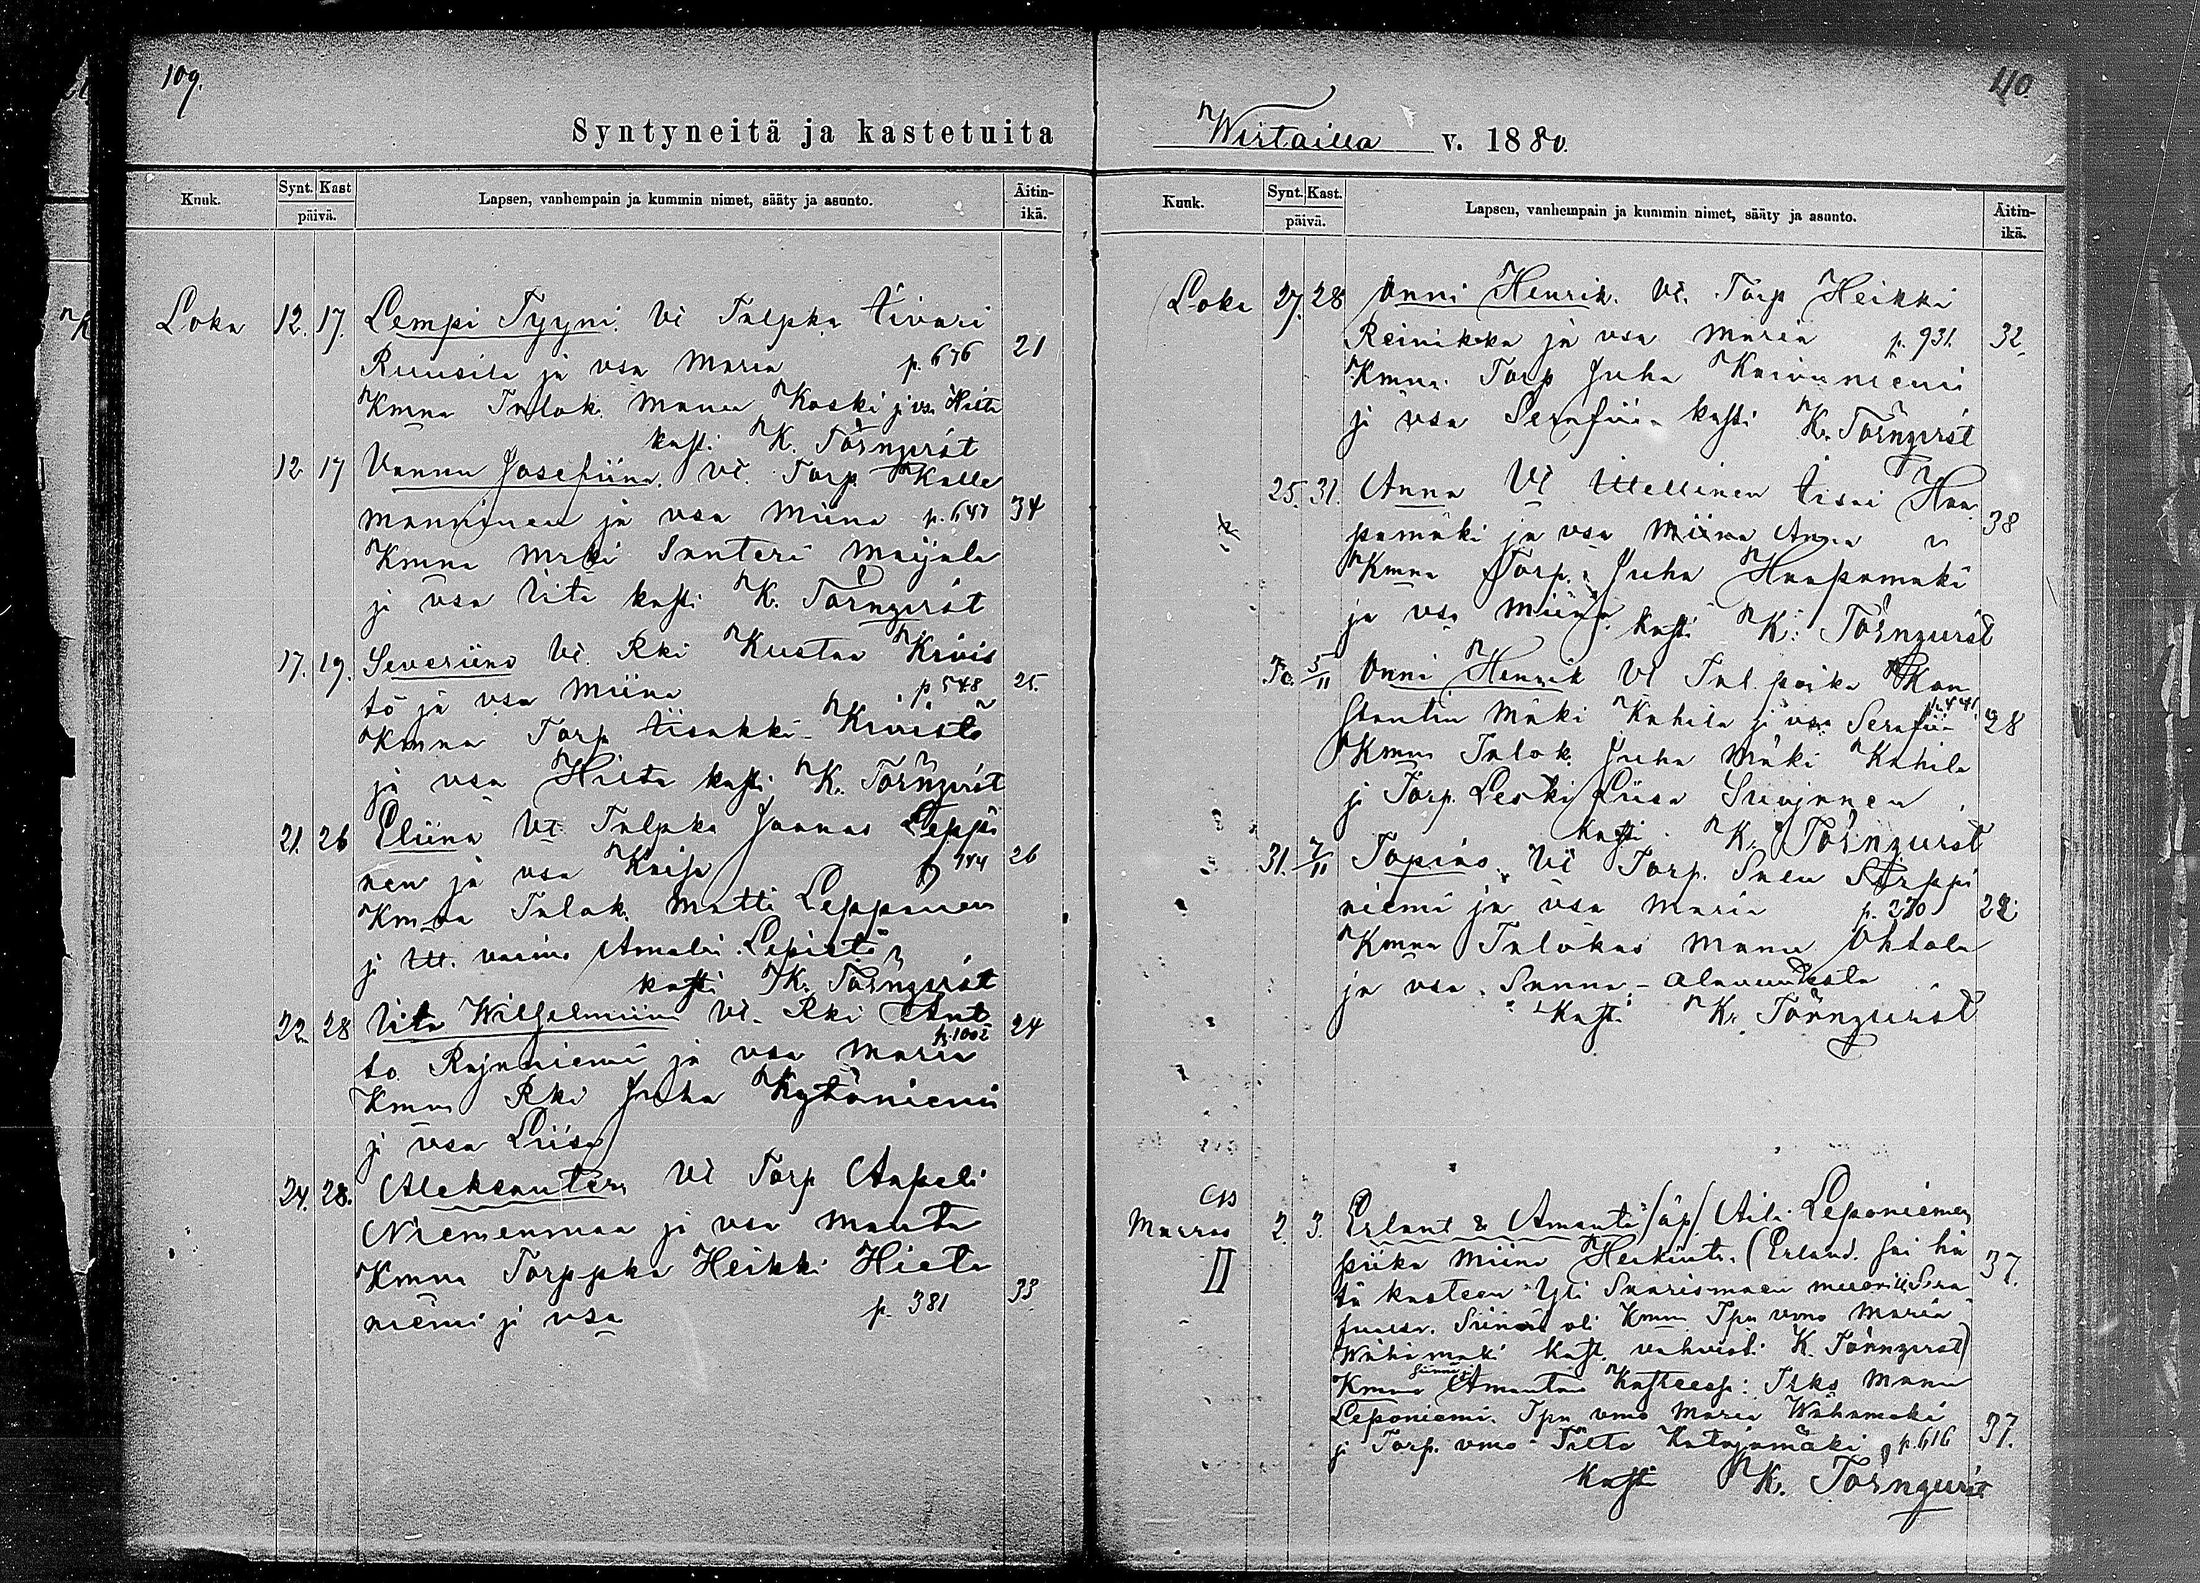 109.
Syntyneitä ja kastetuita
Kuuk. Synt. Kast päivä. Lapsen, vanhempain ja kummin nimet, sääty ja asunto. Äitin-ikä.
Loka 12. 17. Lempi Tyyni. Vi Talpka Iivari
Ruusila ja vsa Maria p. 676 21
Kmna Talok. Manu Koski j. vsa
kasti. K. Törnqvist
12 17 Josefiina. Vi. Torp Kalle
Manninen ja vsa Miina p. 647 34
Kmna Santeri Maijala
ja vsa Vita kasti K. Törnqvist
17. 19. Severiina Vi. Rki Kustaa Kivis
tö ja vsa Miina p. 548 25.
Kmna Torp Iisakki Kivistö
ja vsa Hilta kasti K. Törnqvist
21. 26 Eliina Vi Talpka Joonas Leppä
nen ja vsa Kaisa 26
Kmna Talok. Matti Leppänen
j. vaimo Amalia Lepistö
kasti K. Törnqvist
22 28 Vita Wilhelmiina Vi. Rki Ant
to Rajaniemi ja vsa Maria p. 1002 24
Kmna Rki Juha Kytöniemi
j. vsa Liisa
24. 28. Aleksanteri Vi Torp Aapeli
Niemenmaa j. vsa Manta
Kmna Torppka Heikki Hieta
niemi j. vsa p. 381 33
110
Wirtailla v. 1880.
Kuuk. Synt. Kast. päivä. Lapsen, vanhempain ja kummin nimet, sääty ja asunto. Äitin-ikä.
Loka 27. 28 Onni Henrik. Vi. Torp Heikki
Reinikka ja vsa Maria p. 931. 32
Kmna. Torp Juha Kaivuniemi
j. vsa Serafiina kasti K. Törnqvist
25. 31. Anna Vi Itellinen Iisai Haa
pamäki ja vsa Miina Anna 38
Kmna Torp. Juha Haapamäki
ja vsa Miina. kasti K. Törnqvist
30. 5/11 Onni Henrik Vi Tal. poika Kon
stantin Mäki Kahila j. vsa Serafiina p. 441 28
Kmna Talok. Juha Mäki Kahila
j. Torp. Leski Liisa
kasti. K. Törnqvist
31. 7/11 Tapino Vi Torp. Salu
niemi ja vsa Maria p. 270 22
Kmna Talokas Manu Ohtola
ja vsa Sanna - Alavuudesta
Kasti K. Törnqvist
Marras 2. 3. Erlant & Amanta /äp/ Äiti Leponiemen
II piika Miina Heikint. (Erland. sai hä
tä kasteen Yli Saarismaen muorilta Sera 37.
Siinä oli Kmna Tpn vmo Maria
Wähämäki Kast. vahvisti K. Törnqvist)
Kmna Amantan Kasteess: Itks Manu
Leponiemi. Tpn vmo Maria Wähämäki
j. Torp. vmo Tilta Katajamäki p. 616 37.
Kasti K. Törnqvist